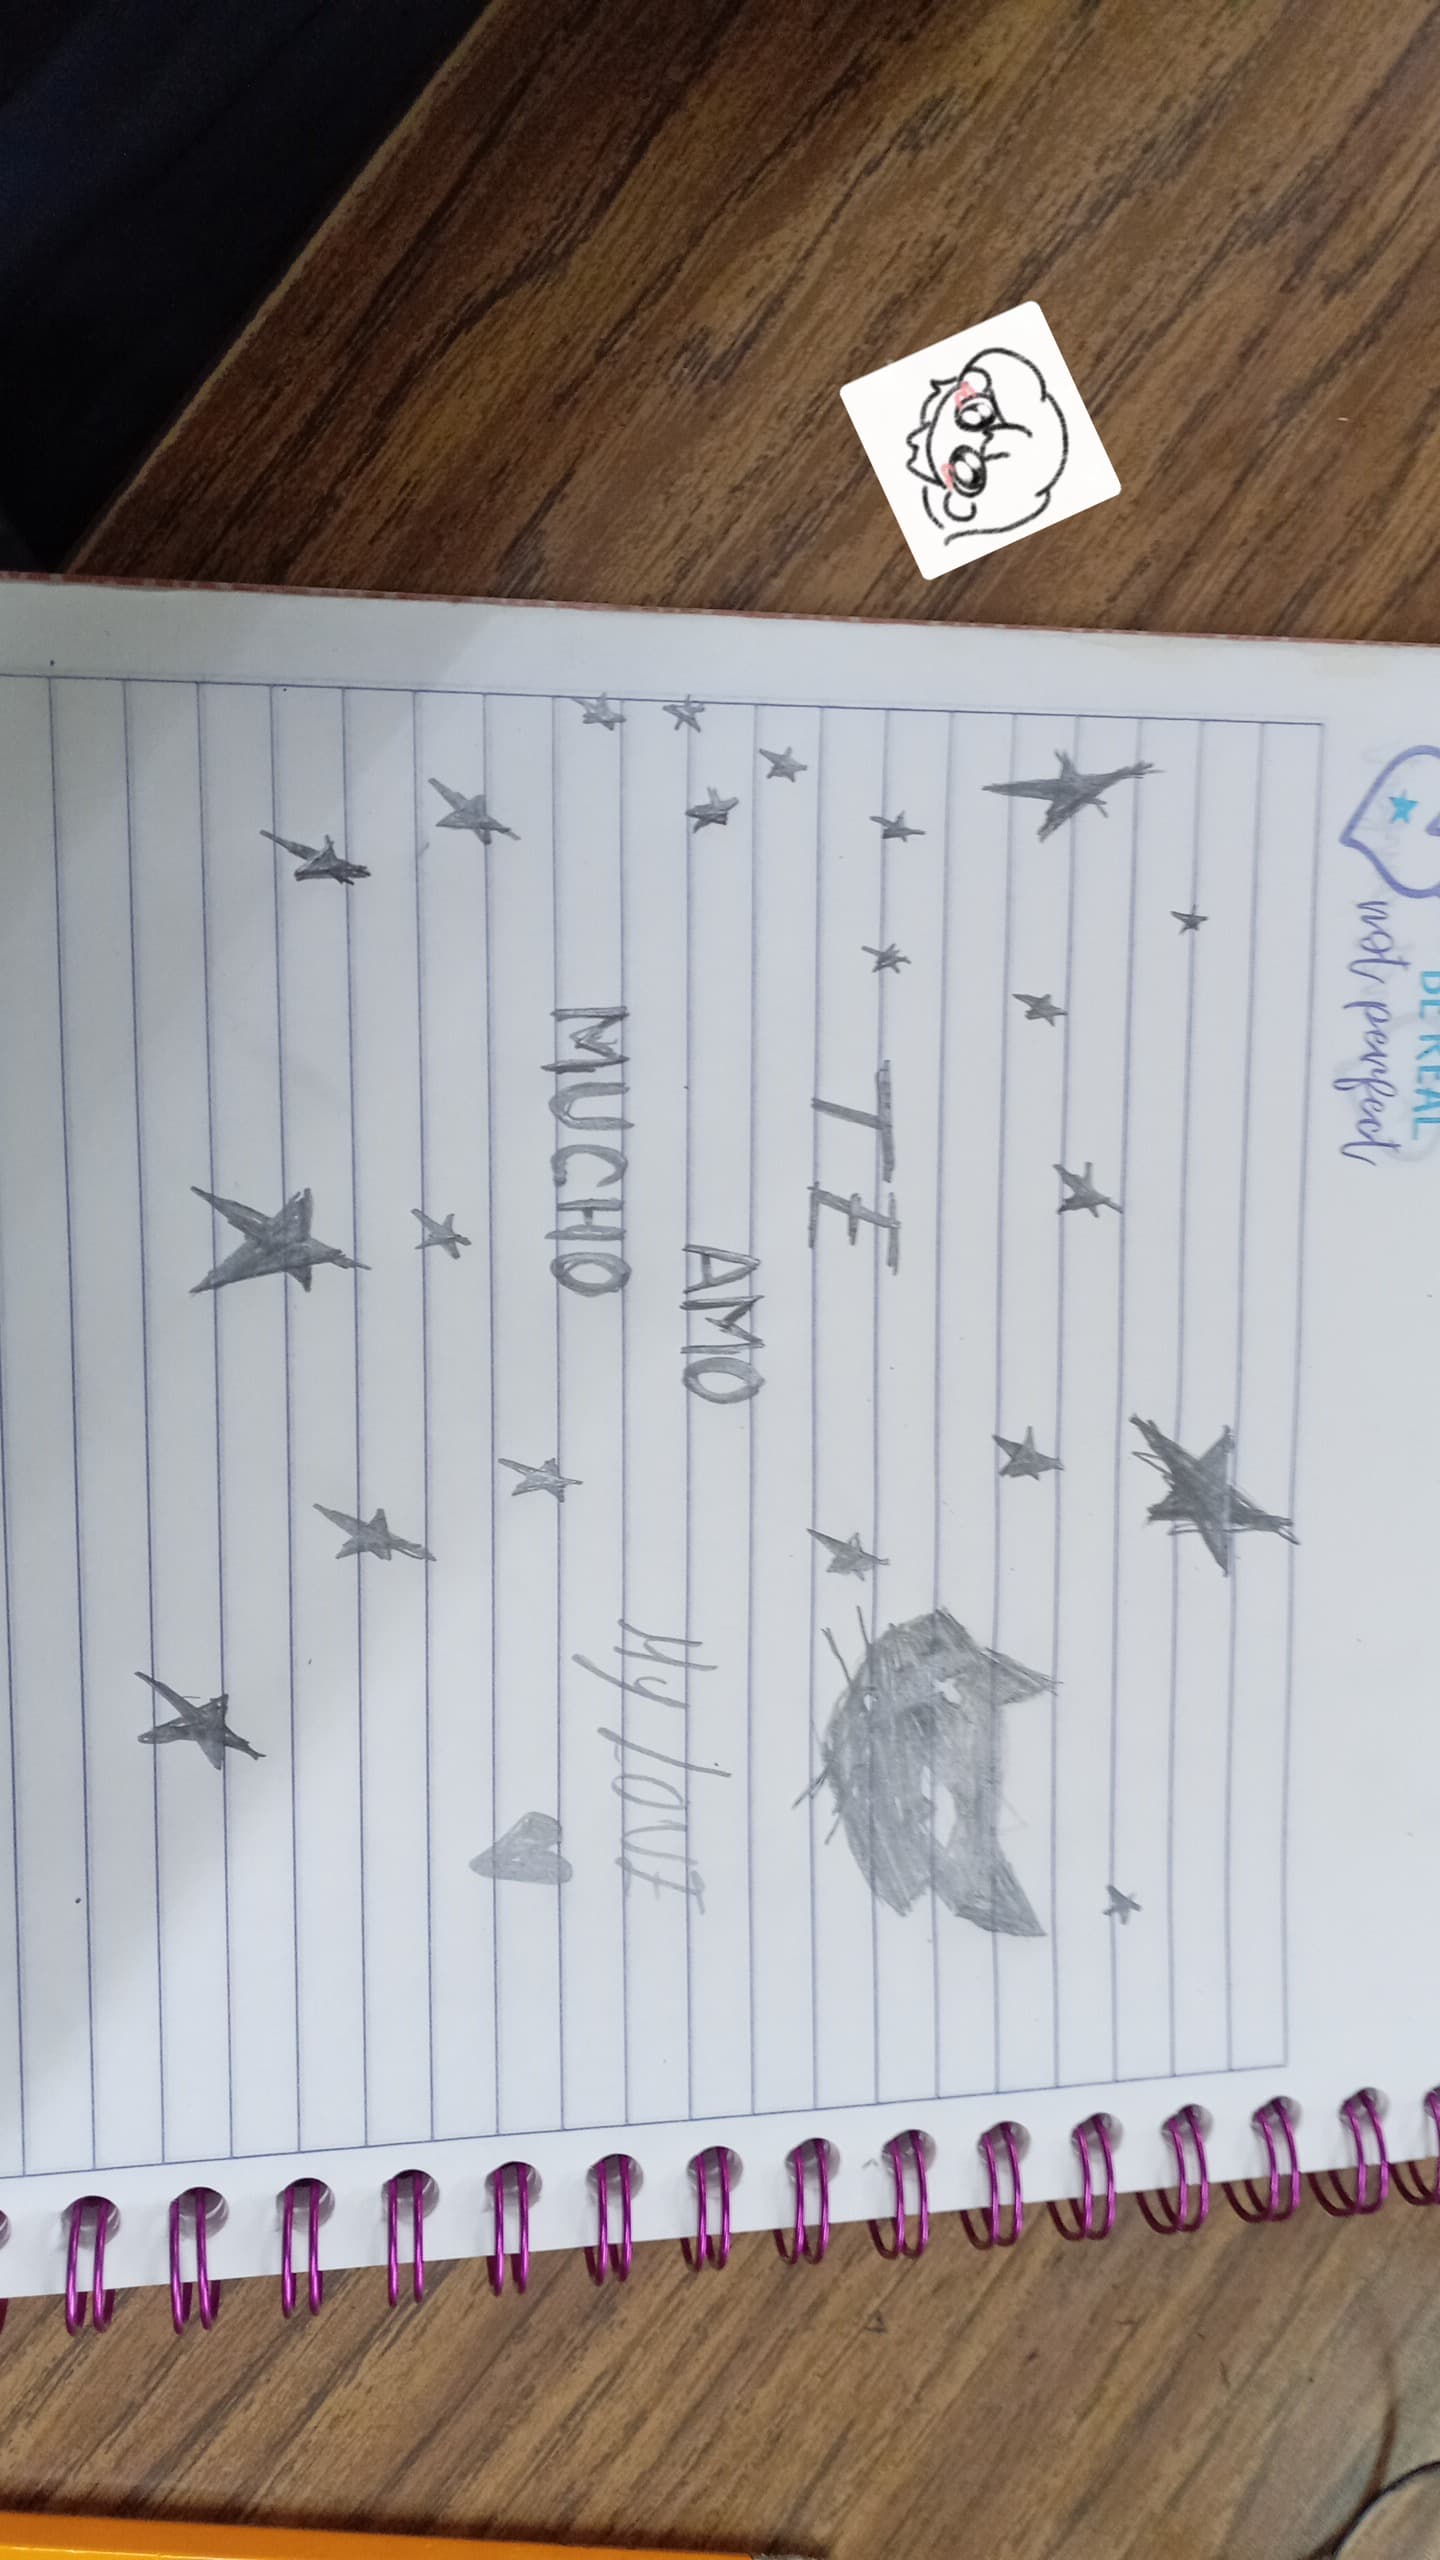 BE REAL
not perfect
TE
AMO
MUCHO
My LOVE